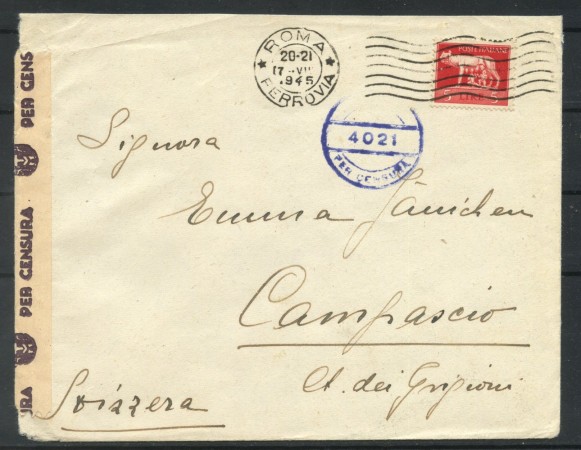 ROMA
20-21
1945
FERROVIA
POSTE ITALIANE
LIRE
4021
PER CENSURA
Signora
Emma
Campascio
Ct. dei Grigioni
Svizzera
PER CENS
PER CENSURA
URA